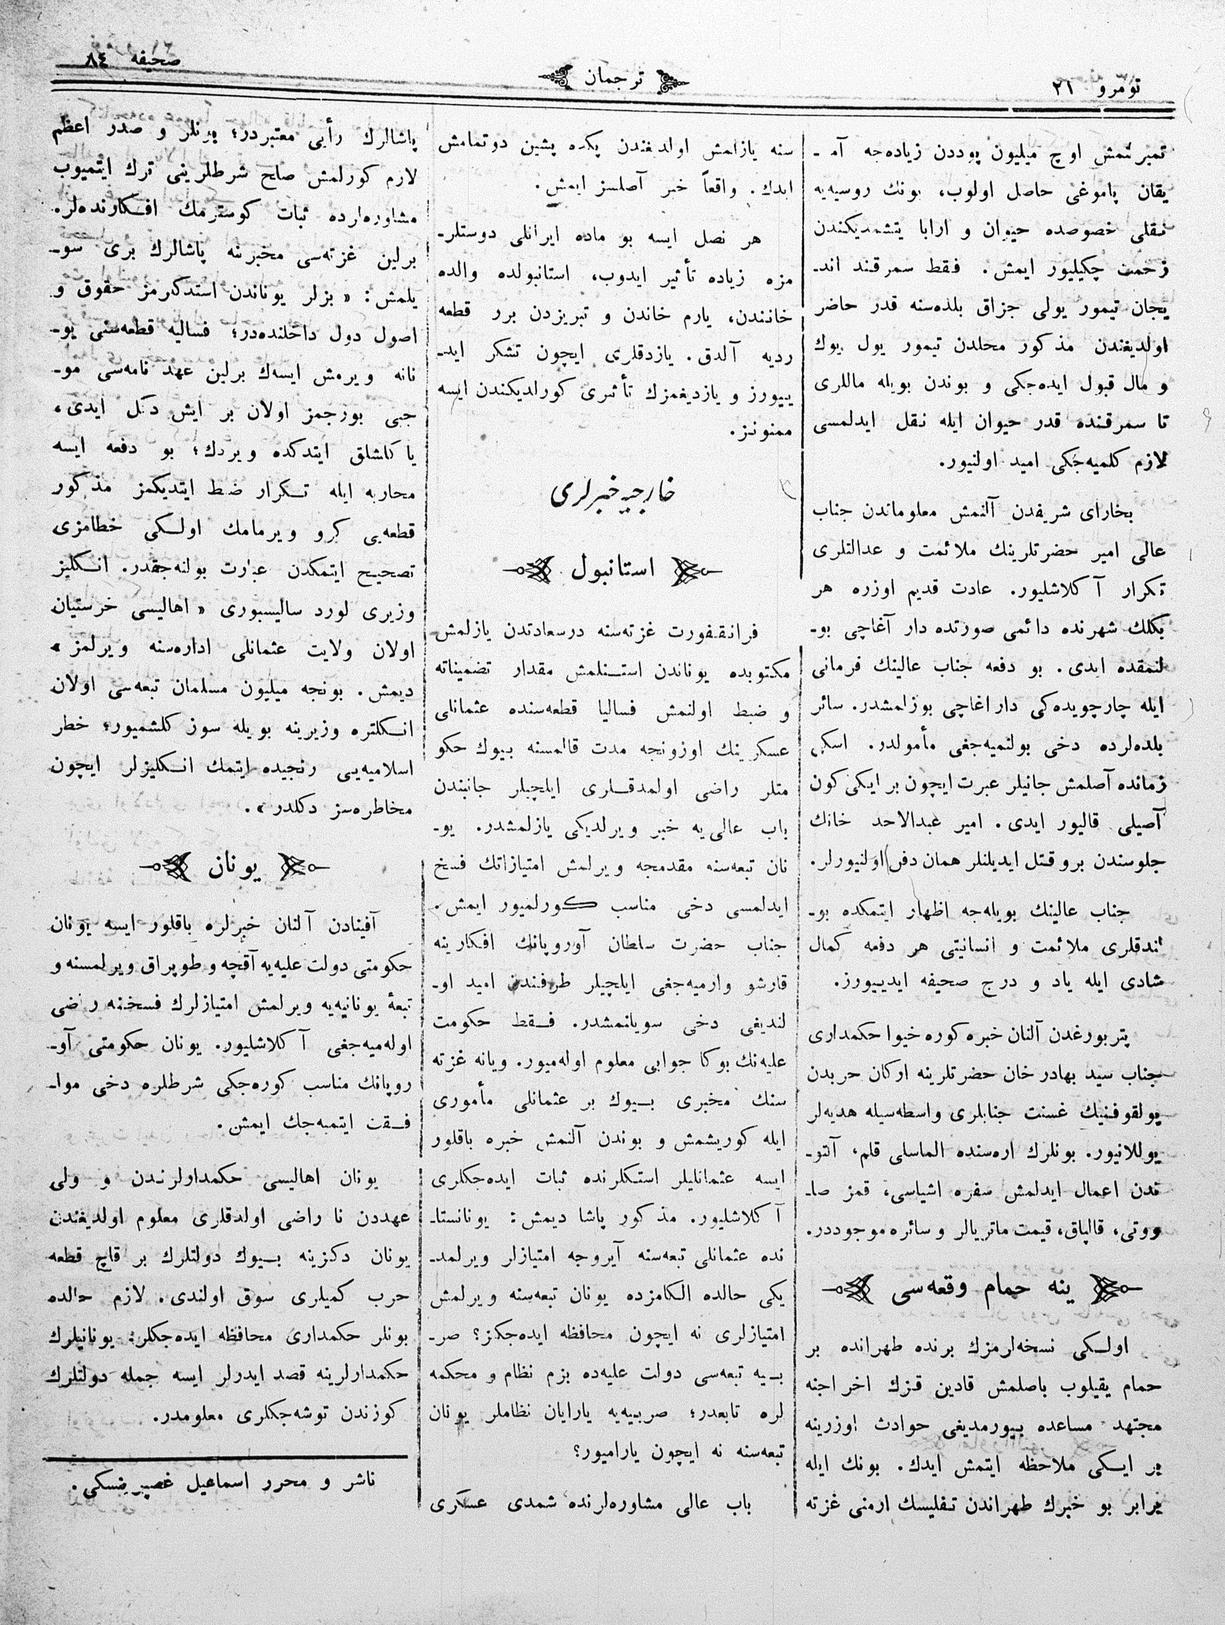 نومرو ٢١
ترجمان
صحيفه ٨٤
اوچ ميليون پوددن زياده‌جه آمـ
يقان پاموغى حاصل اولوب، بونك روسيه‌يه
نقلى خصوصده حيوان و ارابا يتشمديكندن
زحمت چكيليور ايمش. فقط سمرقند اندـ
يجان تيمور يولى جزاق بلده‌سنه قدر حاضر
اولديغندن مذكور محلدن تيمور يول يوك
و مال قبول ايده‌جكى و بوندن بويله ماللرى
تا سمرقنده قدر حيوان ايله نقل ايدلمسى
لازم كلميه‌جكى اميد اولنيور.
بخاراى شريفدن آلنمش معلوماندن جناب
عالى امير حضرتلرينك ملائمت و عدالتلرى
تكرار آكلاشليور. عادت قديم اوزره هر
بكلك شهرنده دائمى صورتده دار آغاچى بوـ
لنمقده ايدى. بو دفعه جناب عالينك فرمانى
ايله چارچويده‌كى دار اغاچى بوزلمشدر. سائر
بلده‌لرده دخى بولنميه‌جغى مأمولدر. اسكى
زمانده آصلمش جانيلر عبرت ايچون بر ايكى كون
آصيلى قاليور ايدى. امير عبدالاحد خانك
جلوسندن برو قتل ايديلنلر همان دفن اولنيورلر.
جناب عالينك بويله‌جه اظهار ايتمكده بوـ
لندقلرى ملائمت و انسانيتى هر دفعه كمال
شادى ايله ياد و درج صحيفه ايدييورز.
پتربورغدن آلنان خبره كوره خيوا حكمدارى
جناب سيد بهادر خان حضرتلرينه اركان حربدن
پولقوفنيك غسنت جنابلرى واسطه‌سيله هديه‌لر
يوللانيور. بونلرك اره‌سنده الماسلى قلم، آلتوـ
ندن اعمال ايدلمش سفره اشياسى، قمز صاـ
ووتى، قالپاق، قيمت ماتريالر و سائره موجوددر.
ينه حمام وقعه‌سى
اولـكى نسخه‌لرمزك برنده طهرانده بر
حمام يقيلوب باصلمش قادين قزك اخراجنه
مجتهد مساعده بيورمديغى حوادث اوزرينه
بر ايـكى ملاحظه ايتمش ايدك. بونك ايله
برابر بو خبرك طهراندن تفليسك ارمنى غزته
سنه يازلمش اولديغندن پكده پشين دوتمامش
ايدك. واقعاً خبر آصلسز ايمش.
هر نصل ايسه بو ماده ايرانلى دوستلرـ
مزه زياده تأثير ايدوب، استانبولده والده
خانندن، يارم خاندن و تبريزدن برر قطعه
رديه آلدق. يازدقلرى ايچون تشكر ايدـ
ييورز و يازديغمزك تأثيرى كورلديكندن ايسه
ممنونز.
خارجيه خبرلرى
استانبول
فرانقفورت غزته‌سنه درسعادتدن يازلمش
مكتوبده يوناندن استـنلمش مقدار تضميناته
و ضبط اولنمش فساليا قطعه‌سنده عثمانلى
عسكرينك اوزونجه مدت قالمسنه بيوك حكو
متلر راضى اولمدقـلرى ايلچيلر جانبندن
باب عالى‌يه خبر ويرلديكى يازلمشدر. يوـ
نان تبعه‌سنه مقدمجه ويرلمش امتيازاتك فسخ
ايدلمسى دخى مناسب كورلميور ايمش.
جناب حضرت سلطان آوروپانك افكارينه
قارشو وارميه‌جغى ايلچيلر طرفندن اميد اوـ
لنديغى دخى سويلنمشدر. فـقط حكومت
عليه‌نك بوكا جوابى معلوم اوله‌ميور. ويانه غزته
سنك مخبرى بـيوك بر عثمانلى مأمورى
ايله كوريشمش و بوندن آلنمش خبره باقلور
ايسه عثمانليلر استكلرنده ثبات ايده‌جكلرى
آكلاشليور. مذكور پاشا ديمش: يونانستاـ
نده عثمانلى تبعه‌سنه آيروجه امتيازلر ويرلمدـ
يكى حالده الكامزده يونان تبعه‌سنه ويرلمش
امتيازلرى نه ايچون محافظه ايده‌جكز؟ صرـ
بـيه تبعه‌سى دولت عليه‌ده بزم نظام و محكمه
لره تابعدر؛ صربيه‌يه يارايان نظاملر يونان
تبعه‌سنه نه ايچون ياراميور؟
باب عالى مشاوره‌لرنده شمدى عسكرى
پاشالرك رأيى معتبردر؛ بونلر و صدر اعظم
لازم كورلمش صلح شرطلرينى ترك ايتميوب
مشاوره‌لرده ثبات كوسترمك افـكارنده‌لر.
برلين غزته‌سى مخبرينه پاشالرك برى سوـ
يلمش: « بزلر يوناندن استدكلرمز حقوق و
اصول دول داخلنده‌در؛ فساليه قطعه‌سنى يوـ
نانه ويرمش ايسه‌ك برلين عهدنامه‌سى موـ
جبى بورجمز اولان بر ايش دكل ايدى.
ياكلشلق ايتدكده ويردك؛ بو دفعه ايسه
محاربه ايله تـكرار ضبط ايتديكمز مذكور
قطعه‌يى كرو ويرمامك اولـكى خطامزى
تصحيح ايتمكدن عبارت بولنه‌جقدر. انـكليز
وزيرى لورد ساليسبورى « اهاليسى خرستيان
اولان ولايت عثمانلى اداره‌سنه ويرلمز »
ديمش. بونجه ميليون مسلمان تبعه‌سى اولان
انـكلتره وزيرينه بويله سوز كلشميور؛ خطر
اسلاميه‌يى رنجيده ايتمك انـكليزلر ايچون
مخاطره‌سز دكلدر ».
يونان
آفينادن آلنان خبرلره باقلور ايسه يونان
حكومتى دولت عليه‌يه آقچه و طوپراق ويرلمسنه و
تبعهٔ يونانيه‌يه ويرلمش امتيازلرك فسخنه راضى
اوله‌ميه‌جغى آكلاشليور. يونان حكومتى آوـ
روپانك مناسب كوره‌جكى شرطلره دخى مواـ
فـقت ايتميه‌جك ايمش.
يونان اهاليسى حكمداولرندن و ولى
عهددن نا راضى اولدقلرى معلوم اولديغندن
يونان دكزينه بـيوك دولتلرك بر قاچ قطعه
حرب كميلرى سوق اولندى. لازم حالده
بونلر حكمدارى محافظه ايده‌جكلر: يونانيلرك
حكمدارلرينه قصد ايدرلر ايسه جمله دولتلرك
كوزندن توشه‌جكلرى معلومدر.
ناشر و محرر اسماعيل غصپرينسكى.